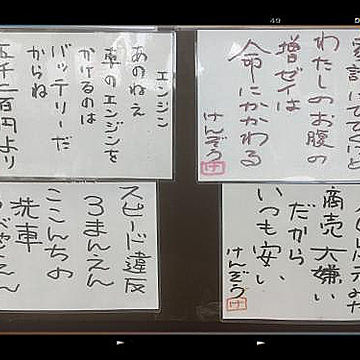 エンジン
あのねえ
車のエンジンを
かけるのは
バッテリーだ
からね
五千二百円より
わたしのお腹の
増ゼイは
命にかかわる
けんぞう
スピード違反
3まんえん
ここんちの
洗車
商売大嫌い
だから
いつも安い
けんぞう
49